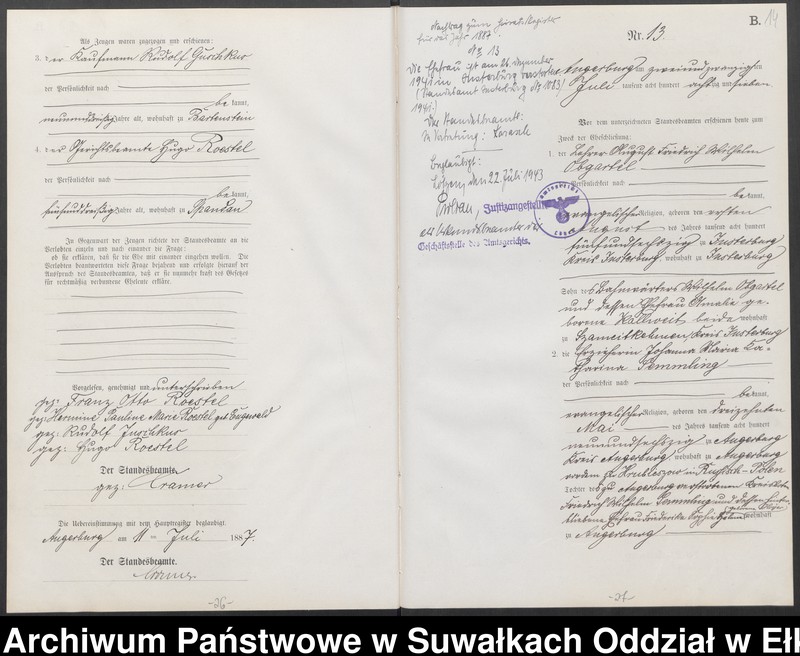 Als Zeugen waren zugezogen und erschienen:
3. der Kaufmann Rudolf Juschkur
der Persönlichkeit nach
bekannt,
neununddreißig Jahre alt, wohnhaft zu Bartenstein
4. der Gerichtsbeamte Hugo Roestel
der Persönlichkeit nach
bekannt,
fünfunddreißig Jahre alt, wohnhaft zu Spandau
In Gegenwart der Zeugen richtete der Standesbeamte an die
Verlobten einzeln und nach einander die Frage:
ob sie erklären, daß sie die Ehe mit einander eingehen wollen. Die
Verlobten beantworteten diese Frage bejahend und erfolgte hierauf der
Ausspruch des Standesbeamten, daß er sie nunmehr kraft des Gesetzes
für rechtmäßig verbundene Eheleute erkläre.
Vorgelesen, genehmigt und unterschrieben
gez: Franz Otto Roestel
gez: Hermine Pauline Marie Roestel geb.
gez: Rudolf Juschkur
gez: Hugo Roestel
Der Standesbeamte.
gez: Cramer
Die Uebereinstimmung mit dem Hauptregister beglaubigt
Angerburg am 11ten Juli 1887.
Der Standesbeamte.
Cramer
-26-
Nachtrag zum Heirats-Register
für das Jahr 1887
No 13
Die Ehefrau ist am 26. Dezember
1941 in Insterburg verstorben
(Standesamt Insterburg No 1083/
1941).
Der Standesbeamte:
In Vertretung:
Beglaubigt:
Lötzen, den 22. Juli 1943
Justizangestellte
als Urkundsbeamter der
Geschäftsstelle des Amtsgerichts.
B.
14
Nr. 13
Angerburg am zweiundzwanzigsten
Juli tausend acht hundert achtzig und sieben
Vor dem unterzeichneten Standesbeamten erschienen heute zum
Zweck der Eheschließung:
1. der Lehrer August Friedrich Wilhelm
Obgartel
der Persönlichkeit nach
bekannt,
evangelischer Religion, geboren den ersten
August des Jahres tausend acht hundert
fünfundsechszig zu Insterburg
Kreis Insterburg, wohnhaft zu Insterburg
Sohn des Bahnwärters Wilhelm Obgartel
und dessen Ehefrau Amalie ge-
borene Kallweit beide wohnhaft
zu Szameitkehmen Kreis Insterburg
2. die Erzieherin Johanna Maria Ka-
tharina Temmling
der Persönlichkeit nach
bekannt,
evangelischer Religion, geboren den dreizehnten
Mai des Jahres tausend acht hundert
neunundsechszig zu Angerburg
Kreis Angerburg, wohnhaft zu Angerburg
vordem zu Hrubieszow in Russisch-Polen
Tochter des zu Angerburg verstorbenen
Friedrich Wilhelm Temmling und dessen hinter-
bliebene Ehefrau Friederike Sophie wohnhaft
zu Angerburg
-27-
Archiwum Państwowe w Suwałkach Oddział w Ełk